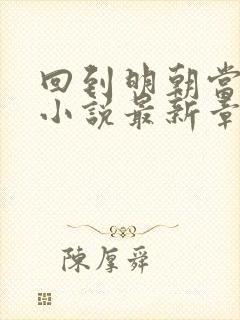 回到明朝当
小说最新章
陈厚舜